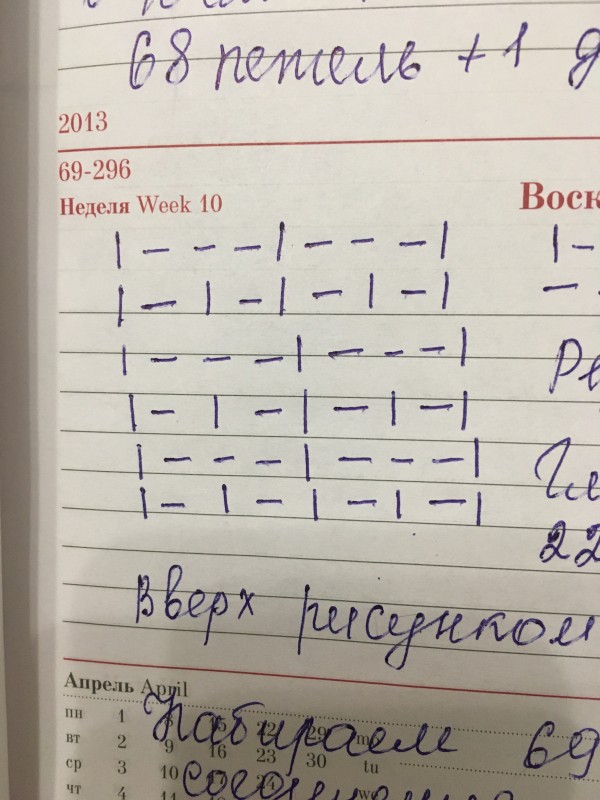 68 петель + 1 д
2013
69-296
Неделя Week 10
Воск
| - - - | - - - |
| - | - | - | - |
| - - - | - - - |
| - | - | - | - |
| - - - | - - - |
| - | - | - | - |
| -
-
Ре
Гл
22
Вверх рисунком
Апрель April
Набираем 69
пн 1 29 mo
вт 2 9 16 23 30 tu
ср 3 10 we
чт 4 11